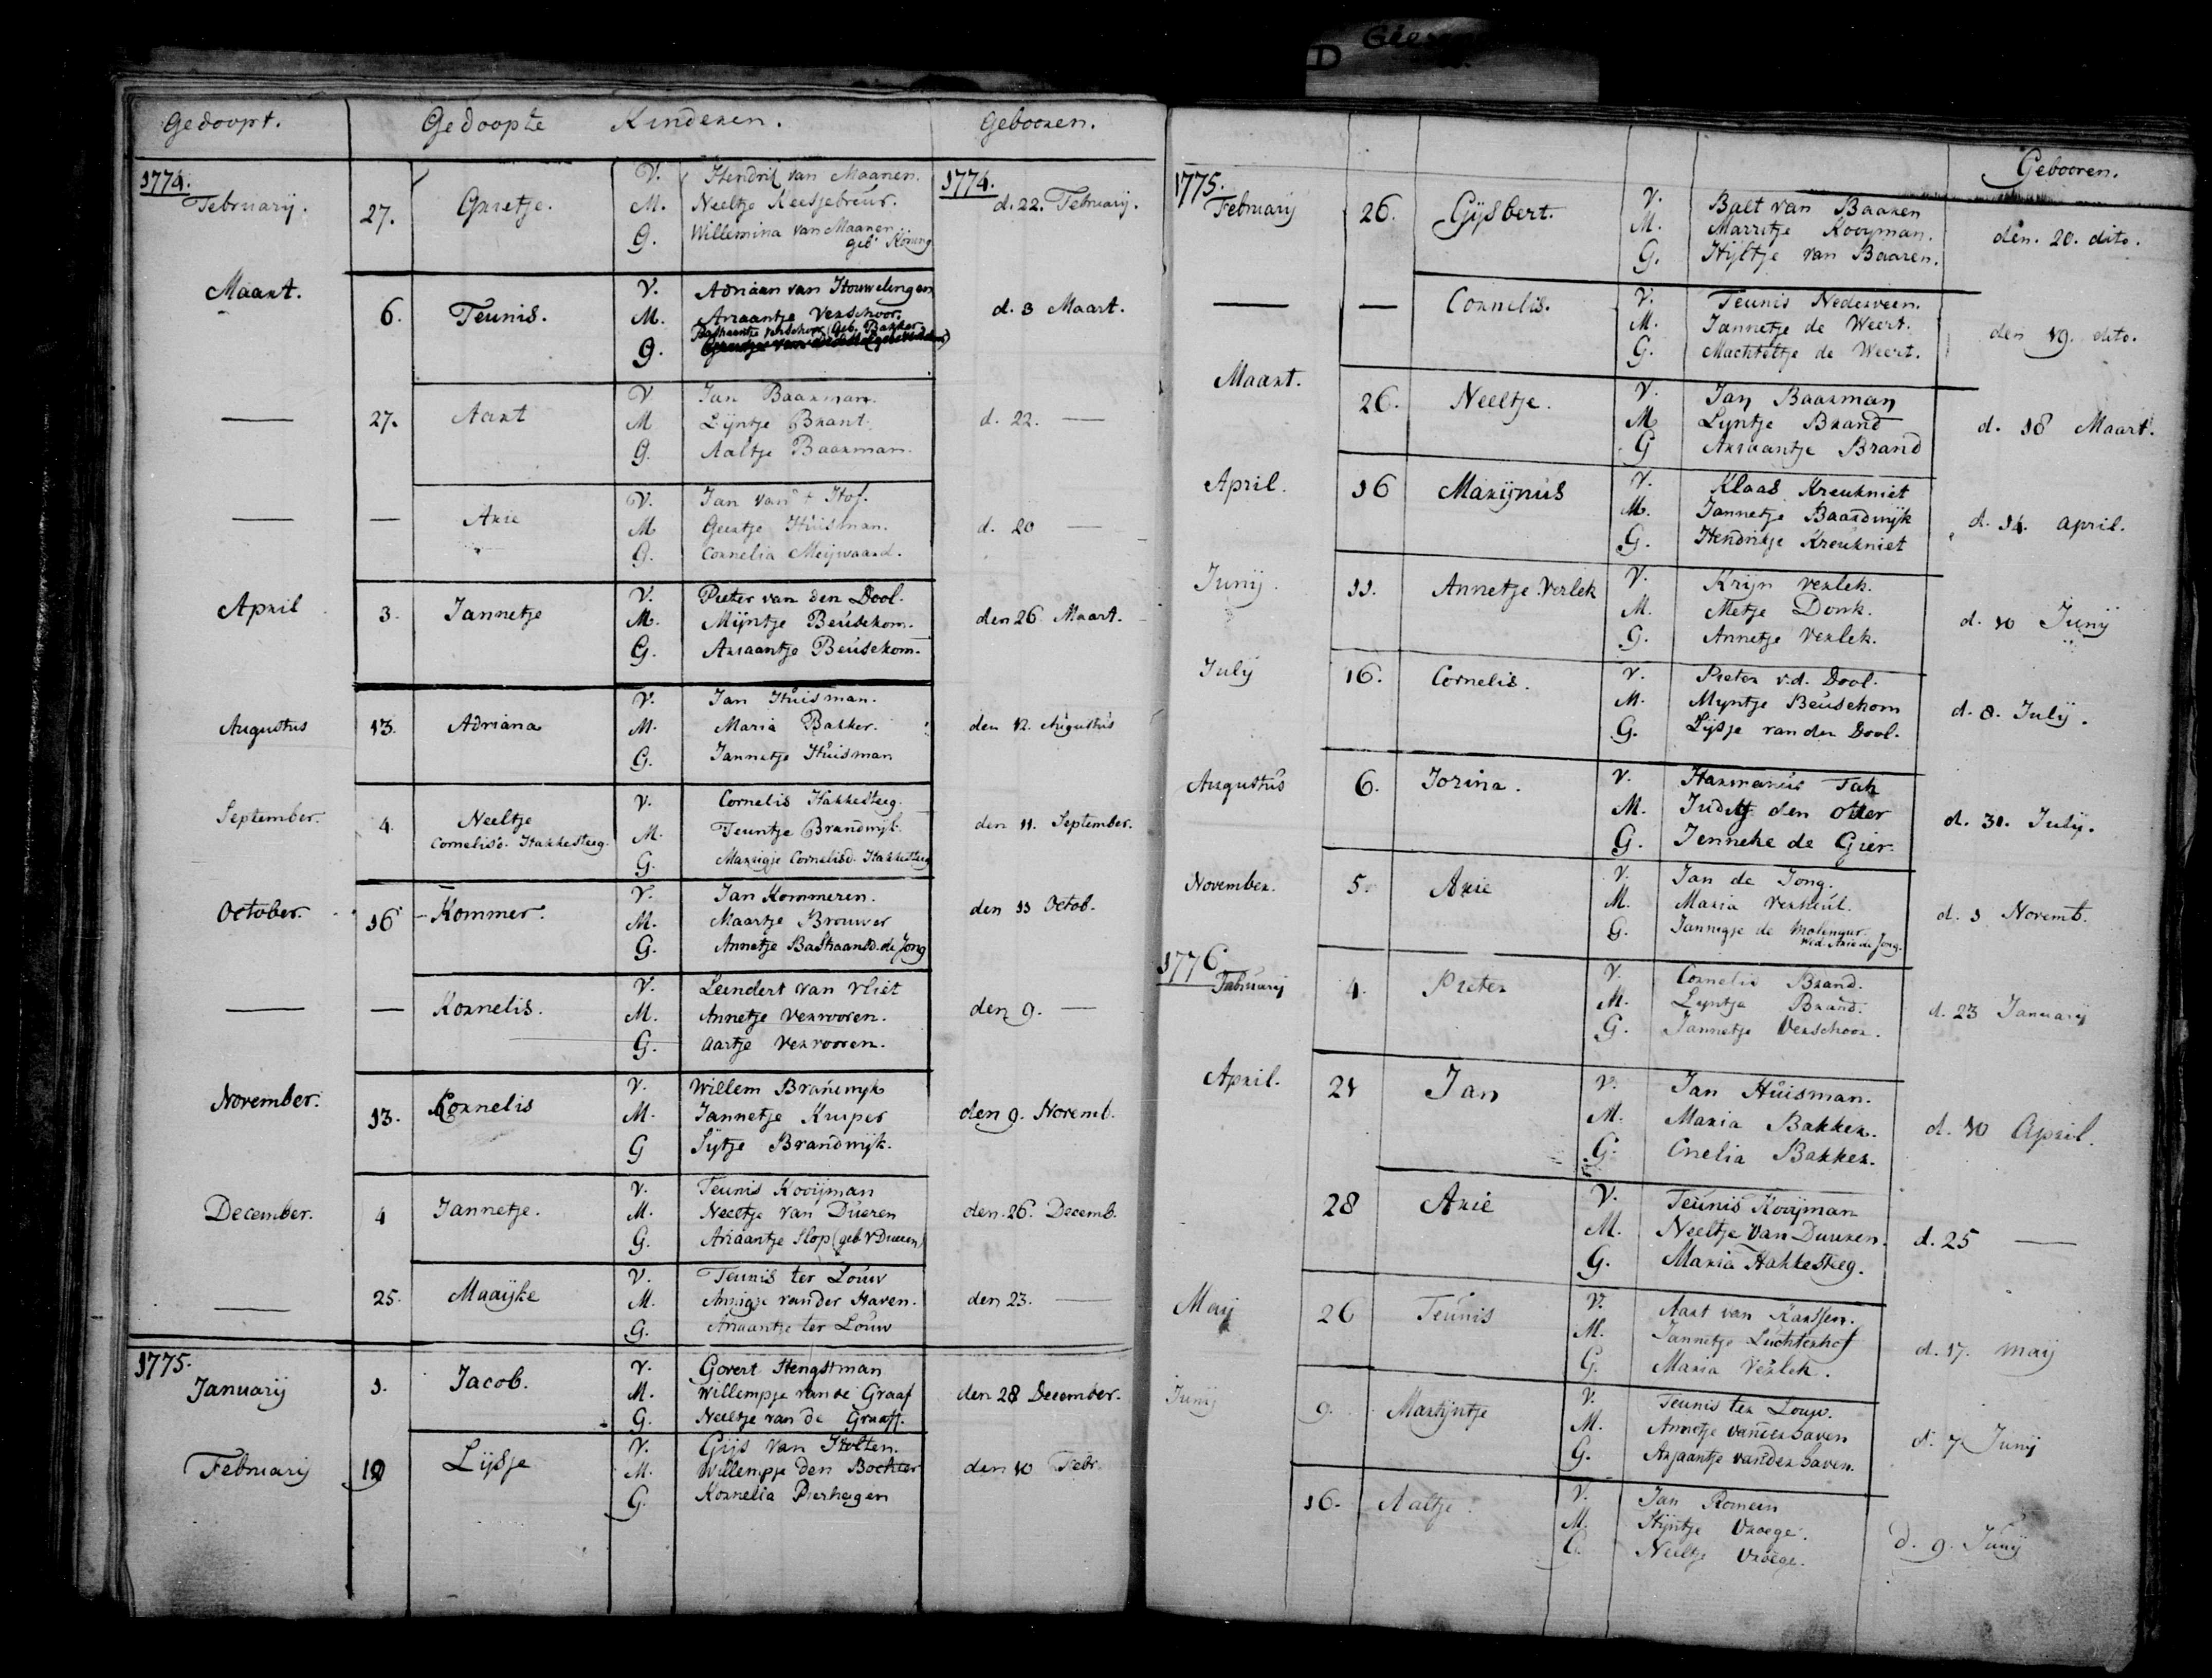 D
Gedoopt. Gedoopte Kinderen. Gebooren.
1774. V. Hendrik van Maanen. 1774.
Februarij. 27. Grietje. M. Neeltje Keesjebreur. d. 22. Februarij.
G. Willemina van Maanen
geb. Koning
Maart. V. Adriaan van Houwelingen
6. Teunis. M. Ariaantje Verschoor. d. 3 Maart.
Bastiaantje Verschoor (Geb. Bakker
G.
V Jan Baarman.
— 27. Aart M Lijntje Brant. d. 22. —
G. Aaltje Baarman.
V. Jan van 't Hof.
— — Arie M Geertje Huisman. d. 20 —
G. Cornelia Meijwaard.
April 3. Jannetje V. Pieter van den Dool.
M. Mijntje Beusekom. den 26 Maart.
G. Ariaantje Beusekom.
V. Jan Huisman.
Augustus 13. Adriana M. Maria Bakker. den 12. Augustus
G. Jannetje Huisman
V. Cornelis Hakkesteeg.
September. 4. Neeltje M. Teuntje Brandwijk. den 11. September.
Cornelisd. Hakkesteeg. G. Marrigje Cornelisd. Hakkesteeg
V. Jan Kommeren.
October. 16 Kommer. M. Maartje Brouwer den 11 Octob.
G. Annetje Bastiaansd. de Jong
V. Leendert van Vliet
— — Kornelis. M. Annetje Verrooren. den 9. —
G. Aartje Verrooren.
V. Willem Brandwyk
November. 13. Kornelis M. Jannetje Kuiper den 9. Novemb.
G Sijtje Brandwijk.
V. Teunis Kooijman
December. 4 Jannetje. M. Neeltje van Dueren den 26. Decemb.
G. Ariaantje Slop (geb. v Dueren)
V. Teunis ter Louw
— 25. Maaijke M. Annigje vander Haven. den 23. —
G. Ariaantje ter Louw
1775. V. Govert Hengstman
Januarij 1. Jacob. M. Willempje van de Graaf den 28 December.
G. Neeltje van de Graaff.
V. Gijs van Holten.
Februarij 19 Lijsje M. Willempje den Bochter den 10 Febr.
G. Kornelia Pierhagen
Gebooren.
1775. V. Balt van Baaren
Februarij 26. Gijsbert. M. Marritje Kooyman. den. 20. dito.
G. Hijltje van Baaren.
— — Cornelis. V. Teunis Nederveen.
M. Jannetje de Weert. den 19. dito.
G. Machteltje de Weert.
Maart. 26. Neeltje. V. Jan Baarman
M Lyntje Brand d. 18 Maart.
G Ariaantje Brand
April. 16 Marijnus V. Klaas Kreukniet
M. Jannetje Baardwijk d. 14. april.
G. Hendrikje Kreukniet
Junij. 11. Annetje Verlek V. Krijn Verlek.
M. Metje Donk. d. 10 Junij
G. Annetje Verlek.
July 16. Cornelis. V. Pieter v.d. Dool.
M. Myntje Beusekom d. 8. Julij.
G. Lijsje van den Dool.
Augustus 6. Jorina. V. Harmanus Tak
M. Judith den Otter d. 31. Julij.
G. Jenneke de Gier.
November. 5. Arie V. Jan de Jong.
M. Maria Verheul. d. 1 Novemb.
G. Jannigje de Molenaar
Wed. Arie de Jong.
1776 V. Cornelis Brand.
Februarij 4. Pieter M. Lyntje Brand. d. 23 Januarij
G. Jannetje Verschoor.
April. 21 Jan V. Jan Huisman.
M. Maria Bakker. d. 10 April.
G. Cnelia Bakker.
28 Arie V. Teunis Kooijman
M. Neeltje van Duuren. d. 25 —
G. Maria Hakkesteeg.
Meij 26 Teunis V. Aart van Karssen.
M. Jannetje Luchtenhof d. 17. maij
G. Maria Verlek.
Junij 9. Martijntje V. Teunis ter Louw.
M. Annetje vanderhaven d. 7 Junij
G. Arjaantje vanderhaven.
16. Aaltje. V. Jan Romein
M. Hijntje Vroege. d. 9. Junij
G. Neeltje Vroege.